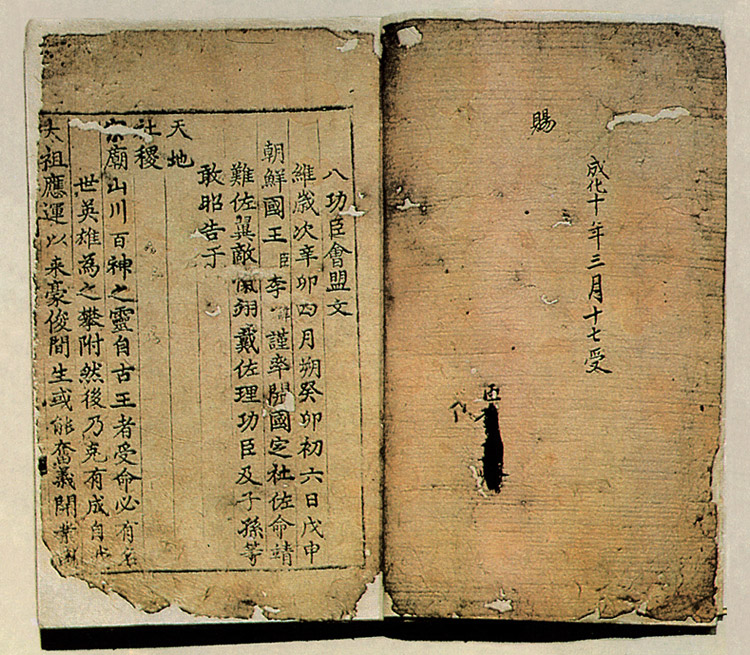 成化十年三月十七受
賜
八功臣會盟文
維歲次辛卯四月朔癸卯初六日戊申
朝鮮國王臣李謹率開國定社佐命靖
難佐翼敵愾翊戴佐理功臣及子孫等
敢昭告于
天地
社稷
宗廟山川百神之靈自古王者受命必有名
世英雄為之攀附然後乃克有成自
太祖應運以来豪俊間生或能奮義開業